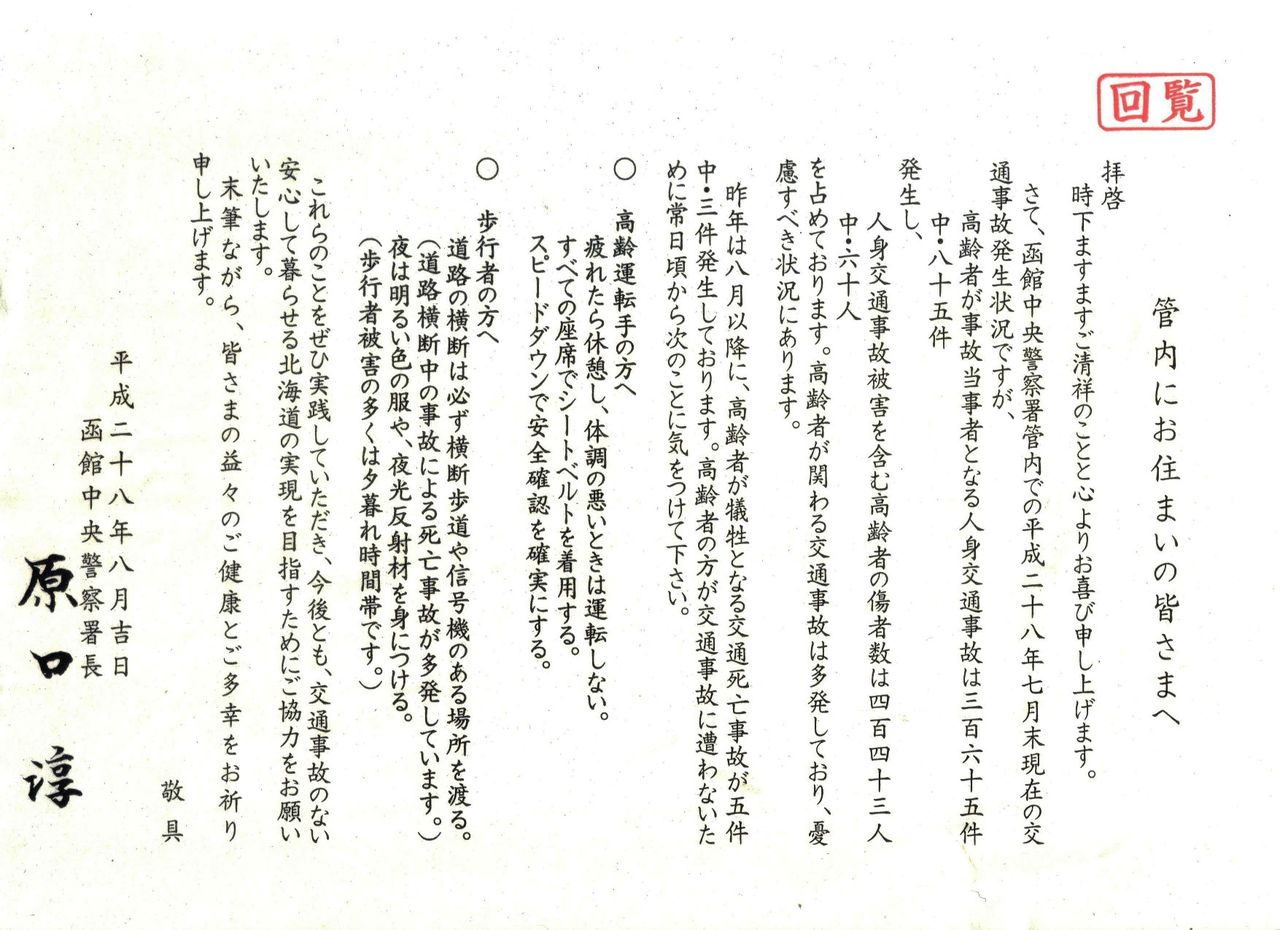 回覧
管内にお住まいの皆さまへ
拝啓
時下ますますご清祥のことと心よりお喜び申し上げます。
さて、函館中央警察署管内での平成二十八年七月末現在の交
通事故発生状況ですが、
高齢者が事故当事者となる人身交通事故は三百六十五件
中・八十五件
発生し、
人身交通事故被害を含む高齢者の傷者数は四百四十三人
中・六十人
を占めております。高齢者が関わる交通事故は多発しており、憂
慮すべき状況にあります。
昨年は八月以降に、高齢者が犠牲となる交通死亡事故が五件
中・三件発生しております。高齢者の方が交通事故に遭わないた
めに常日頃から次のことに気をつけて下さい。
○　高齢運転手の方へ
疲れたら休憩し、体調の悪いときは運転しない。
すべての座席でシートベルトを着用する。
スピードダウンで安全確認を確実にする。
○　歩行者の方へ
道路の横断は必ず横断歩道や信号機のある場所を渡る。
（道路横断中の事故による死亡事故が多発しています。）
夜は明るい色の服や、夜光反射材を身につける。
（歩行者被害の多くは夕暮れ時間帯です。）
これらのことをぜひ実践していただき、今後とも、交通事故のない
安心して暮らせる北海道の実現を目指すためにご協力をお願い
いたします。
末筆ながら、皆さまの益々のご健康とご多幸をお祈り
申し上げます。
敬具
平成二十八年八月吉日
函館中央警察署長
原口淳